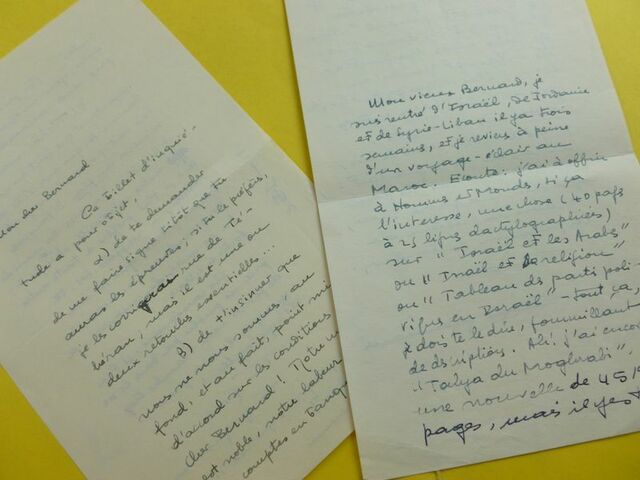 mon cher Bernard
Ce billet d'inquié-
tude a pour objet,
a) de te demander
de me faire signe sitôt que tu
auras les épreuves ; si tu le préfères,
je les corrigerais rue de Té-
héran, mais il est une ou
deux retouches essentielles...
B) de t'insinuer que
nous ne nous sommes, au
fond, et au fait, point mis
d'accord sur les conditions
cher Bernard ! Notre
est noble, notre labeur
comptes en
Mon vieux Bernard, je
suis rentré d'Israël, de Jordanie
et de Syrie-Liban il y a trois
semaines, et je reviens à peine
d'un voyage-éclair au
Maroc. Ecoute : j'ai à offrir
à Hommes et Mondes, si ça
l'intéresse, une chose (40 pages
à 25 lignes dactylographiées)
sur "Israël et les Arabes"
ou "Israël et la religion"
ou "Tableau des partis poli-
tiques en Israël" - tout ça,
je dois te le dire, fourmillant
de descriptions. Ah! j'ai encore
"Tahya du Moghrabi",
une nouvelle de 45
pages, mais il y est